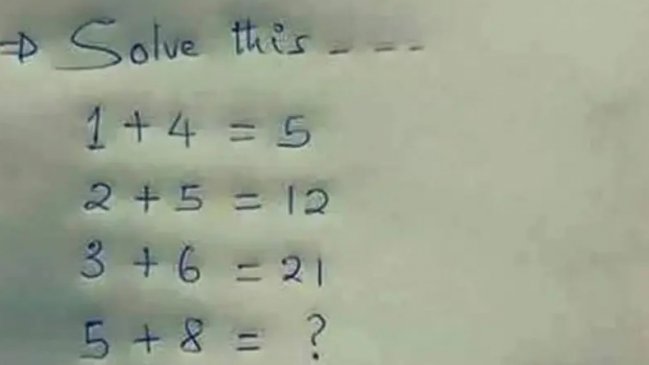 ⇒ Solve this - - -
1 + 4 = 5
2 + 5 = 12
3 + 6 = 21
5 + 8 = ?